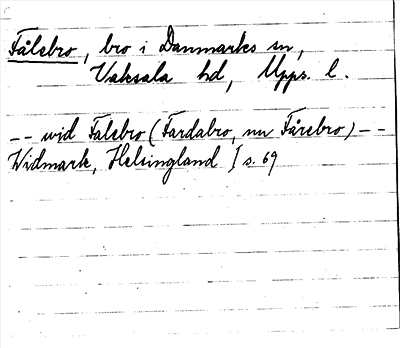 Fålebro, bro i Danmarks sn,
Vaksala hd, Upps. l.
-- wid Falebro (Fardabro, nu Fårebro) --
Widmark, Helsingland I s. 69